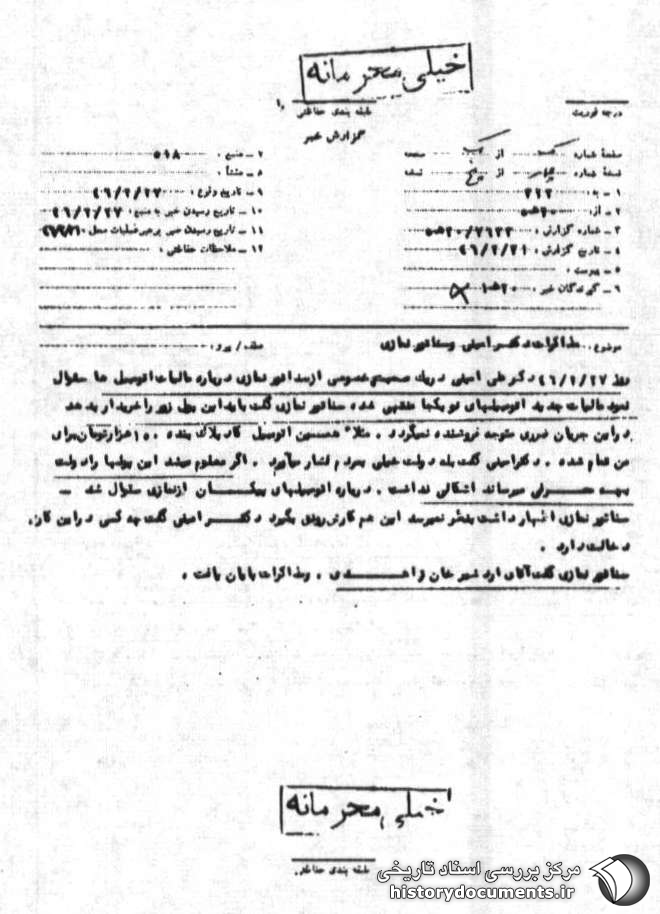 خیلی محرمانه
طبقه بندی حفاظتی
درجه فوریت
گزارش خبر
صفحه شماره یک از یک صفحه
نسخه شماره چهار از پنج نسخه
۱ ـ به: ۳۲۲
۲ ـ از: ۲۰ه۵
۳ ـ شماره گزارش:
۴ ـ تاریخ گزارش: ۴۶/۲/۳۱
۵ ـ پیوست:
۶ ـ گیرندگان خبر:
۷ ـ منبع: ۵۱۸
۸ ـ منشأ:
۹ ـ تاریخ وقوع: ۴۶/۲/۲۷
۱۰ ـ تاریخ رسیدن خبر به منبع: ۴۶/۲/۲۷
۱۱ ـ تاریخ رسیدن خبر به رهبر عملیات محل:
۱۲ ـ ملاحظات حفاظتی:
موضوع: مذاکرات دکتر امینی و سناتور نمازی
عطف / پیرو:
روز ۴۶/۲/۲۷ دکتر علی امینی در یک صحبت خصوصی از سناتور نمازی درباره مالیات اتومبیل ها سئوال
نمود مالیات جدید اتومبیلهای نو بکجا منتهی شده سناتور نمازی گفت باید این پول زور را خریدار بدهد
در این جریان ضرری متوجه فروشنده نمیگردد. مثلا همین اتومبیل کادیلاک بنده ۱۵۰ هزار تومان برای
من تمام شده. دکتر امینی گفت بله دولت خیلی بمردم فشار میآورد. اگر معلوم میشد این پولها را دولت
بچه مصرفی میرساند اشکالی نداشت. درباره اتومبیلهای پیکان از نمازی سئوال شد ـ
سناتور نمازی اظهار داشت بنظر نمیرسد این هم کارش رونق بگیرد دکتر امینی گفت چه کسی در این کار
دخالت دارد.
سناتور نمازی گفت آقای اردشیر خان زاهدی. و مذاکرات پایان یافت.
خیلی محرمانه
طبقه بندی حفاظتی
مرکز بررسی اسناد تاریخی
historydocuments.ir